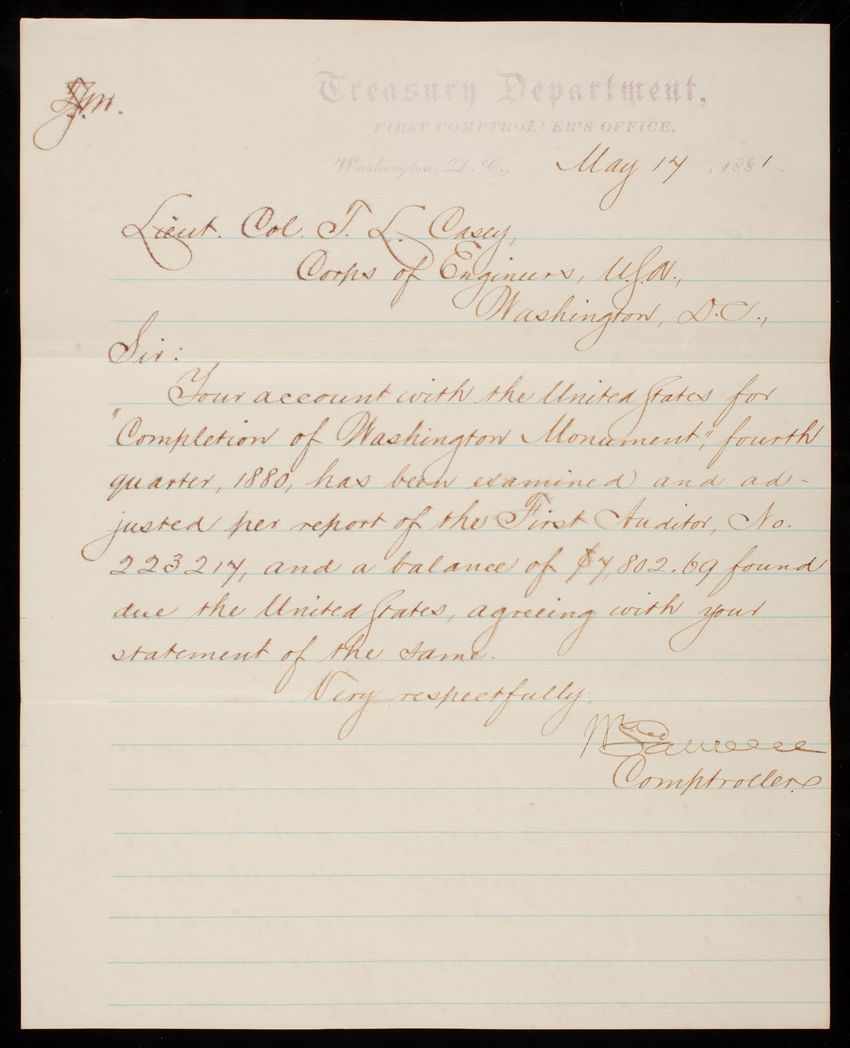 Treasury Department,
FIRST COMPTROLLER'S OFFICE,
Washington, D. C., May 17, 1881.
Lieut. Col. T. L. Casey,
Corps of Engineers, U.S.A.,
Washington, D.C.,
Sir:
Your account with the United States for
"Completion of Washington Monument," fourth
quarter, 1880, has been examined and ad-
justed per report of the First Auditor, No.
223217, and a balance of $7,802.69 found
due the United States, agreeing with your
statement of the same.
Very respectfully,
Wm Lawrence
Comptroller.